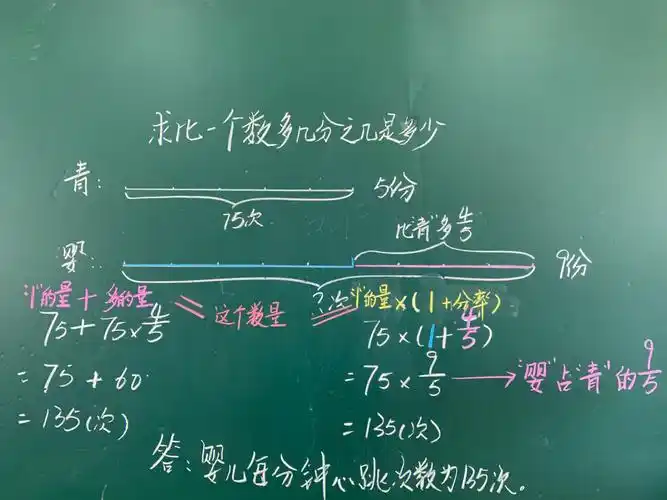 求比一个数多几分之几是多少
青: 5份
75次
比"青"多4/5
婴: 9份
?次
"1"的量+多的量 = 这个数量 = "1"的量×(1+分率)
75+75×4/5
=75+60
=135(次)
75×(1+4/5)
=75×9/5 → "婴"占"青"的9/5
=135(次)
答:婴儿每分钟心跳次数为135次。